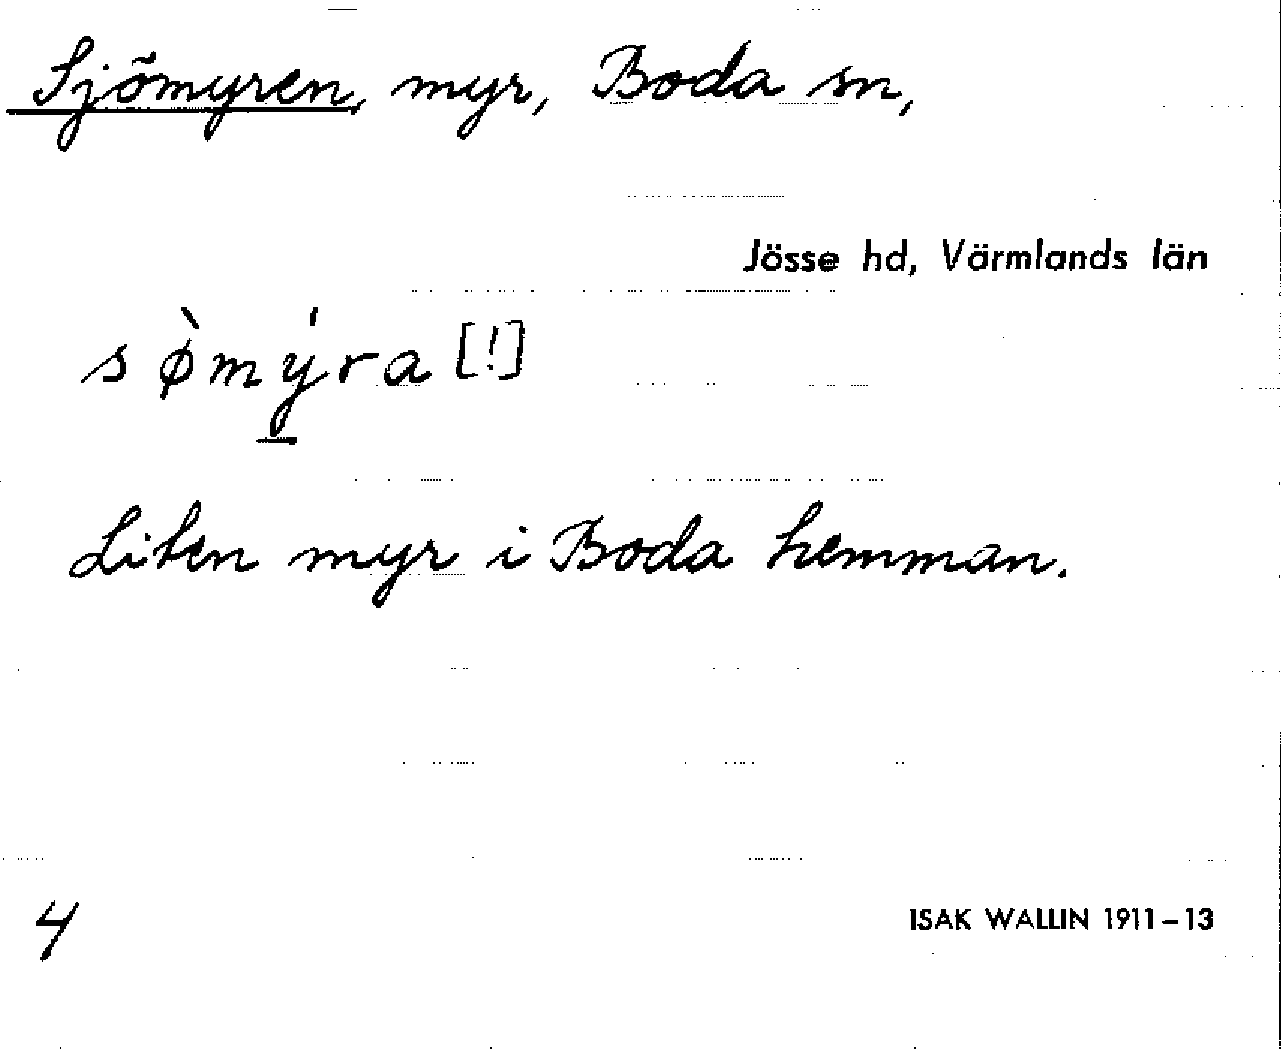 Sjömyren, myr, Boda sn,
Jösse hd, Värmlands län
sø̀mý̱ra [!]
Liten myr i Boda hemman.
4
ISAK WALLIN 1911–13